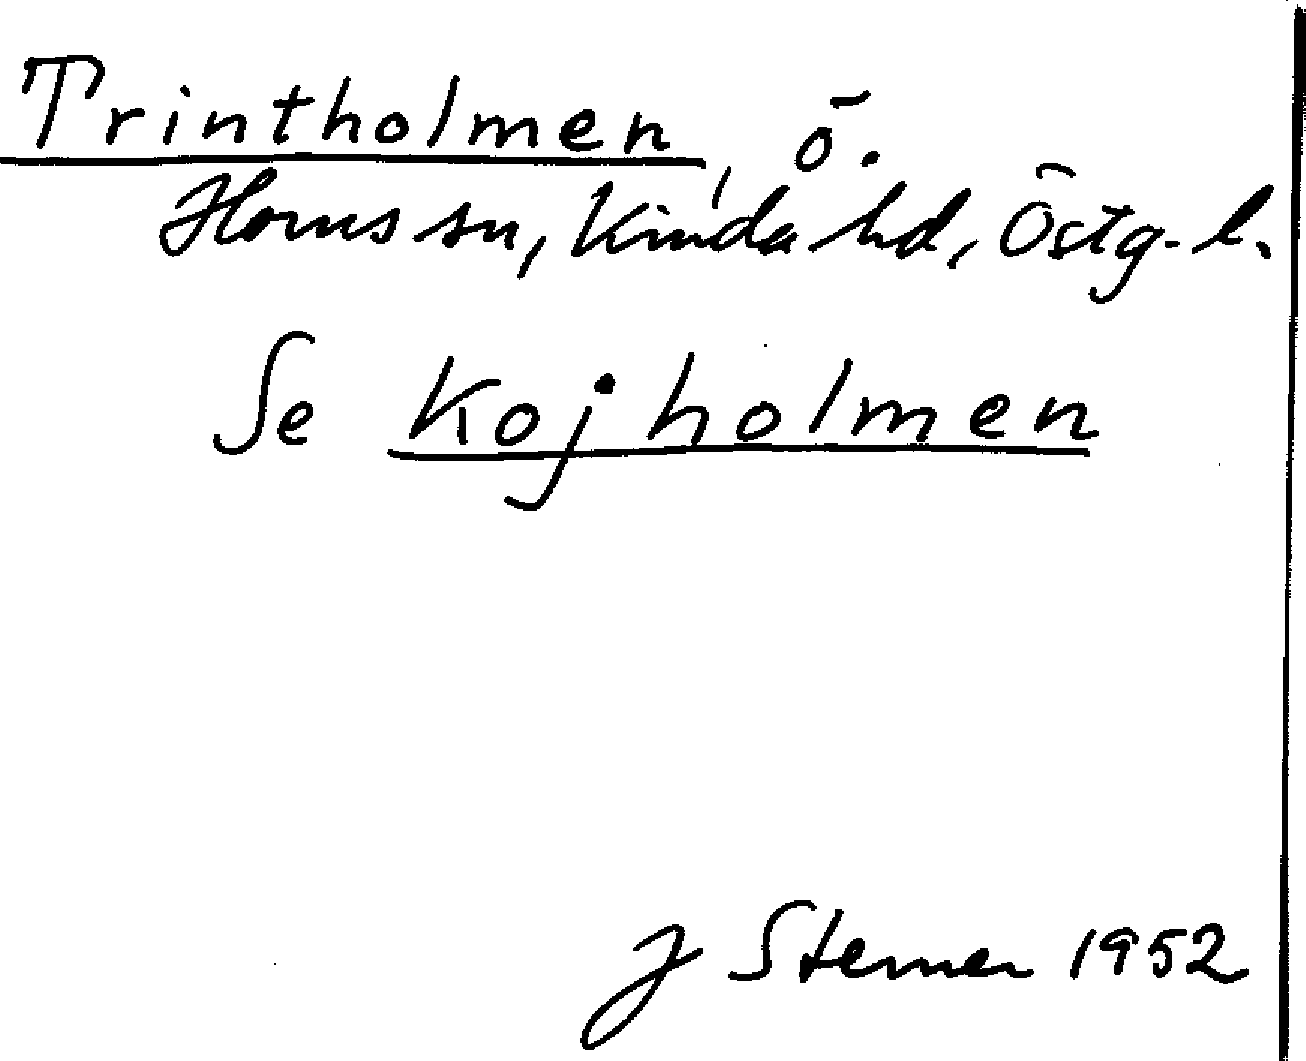 Trintholmen, ö.
Horns sn, Kinda hd, Östg. l.
Se Kojholmen
J Sterner 1952